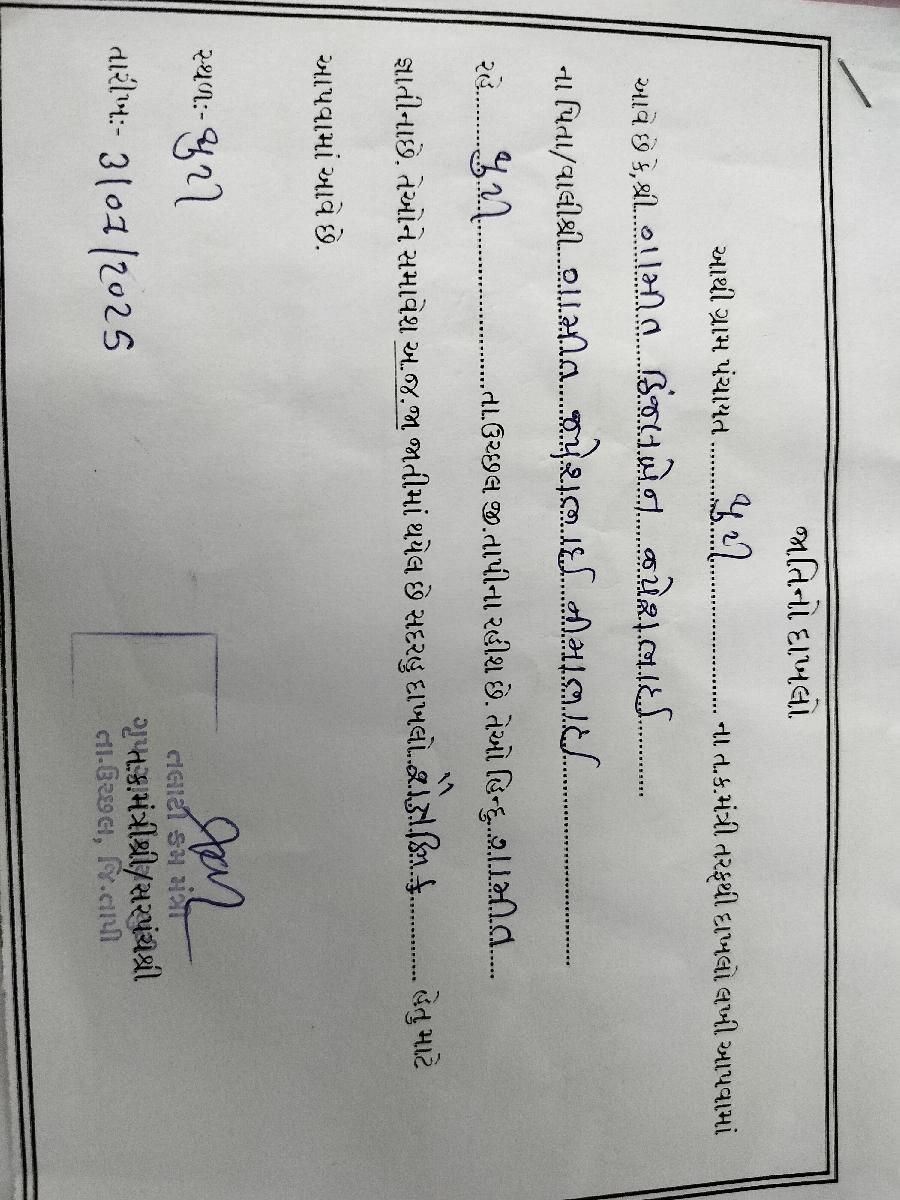 જાતિનો દાખલો
આથી ગ્રામ પંચાયત ના ત.ક.મંત્રી તરફથી દાખલો લખી આપવામાં
આવે છે કે,શ્રી ગામીત જયેશભાઈ
ના પિતા/વાલીશ્રી ગામીત જયેશભાઈ નીમાભાઈ
રહે. તા.ઉચ્છલ જી.તાપીના રહીશ છે. તેઓ હિન્દુ ગામીત
જ્ઞાતીનાછે. તેઓને સમાવેશ અ.જ.જા જાતીમાં થયેલ છે સદરહુ દાખલો શૈક્ષણિક હેતુ માટે
આપવામાં આવે છે.
સ્થળઃ-
તારીખઃ- 3/07/2025
તલાટી કમ મંત્રી
ત.ક.મંત્રીશ્રી/સરપંચશ્રી
તા.ઉચ્છલ, જિ.તાપી